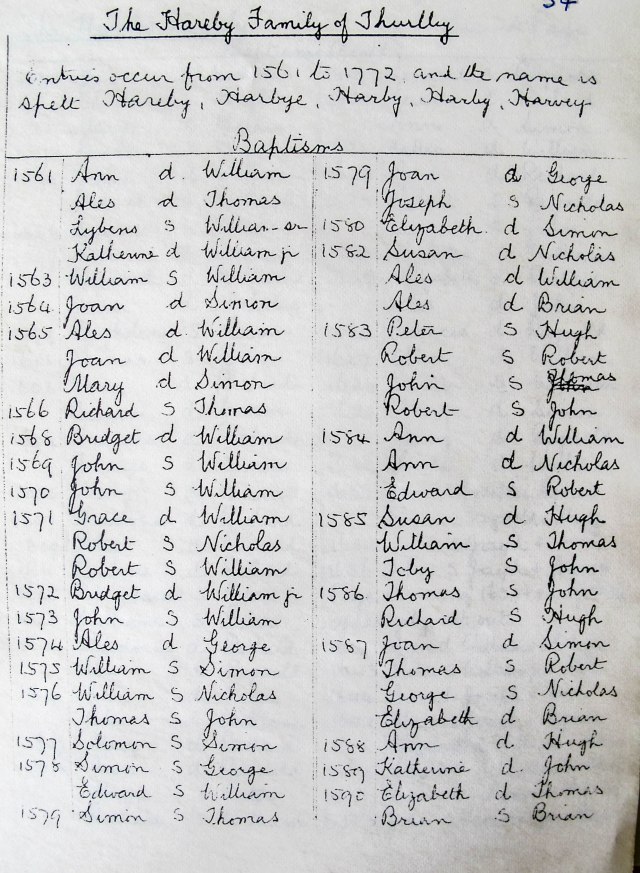 54
The Hareby Family of Thurlby
Entries occur from 1561 to 1772 and the name is
spelt Hareby, Harbye, Harby, Harby, Harvey
Baptisms
1561 Ann d. William
Ales d Thomas
Lybens s William sr
Katherine d William jr
1563 William S William
1564 Joan d Simon
1565 Ales d William
Joan d William
Mary d Simon
1566 Richard S Thomas
1568 Bridget d William
1569 John S William
1570 John S William
1571 Grace d William
Robert S Nicholas
Robert S William
1572 Bridget d William jr
1573 John S William
1574 Ales d George
1575 William S Simon
1576 William S Nicholas
Thomas S John
1577 Solomon S Simon
1578 Simon S George
Edward S William
1579 Simon S Thomas
1579 Joan d George
Joseph S Nicholas
1580 Elizabeth d Simon
1582 Susan d Nicholas
Ales d William
Ales d Brian
1583 Peter S Hugh
Robert S Robert
John S Thomas
Robert S John
1584 Ann d William
Ann d Nicholas
Edward S Robert
1585 Susan d Hugh
William S Thomas
Toby S John
1586 Thomas S John
Richard S Hugh
1587 Joan d Simon
Thomas S Robert
George S Nicholas
Elizabeth d Brian
1588 Ann d Hugh
1589 Katherine d. John
1590 Elizabeth d Thomas
Brian S Brian